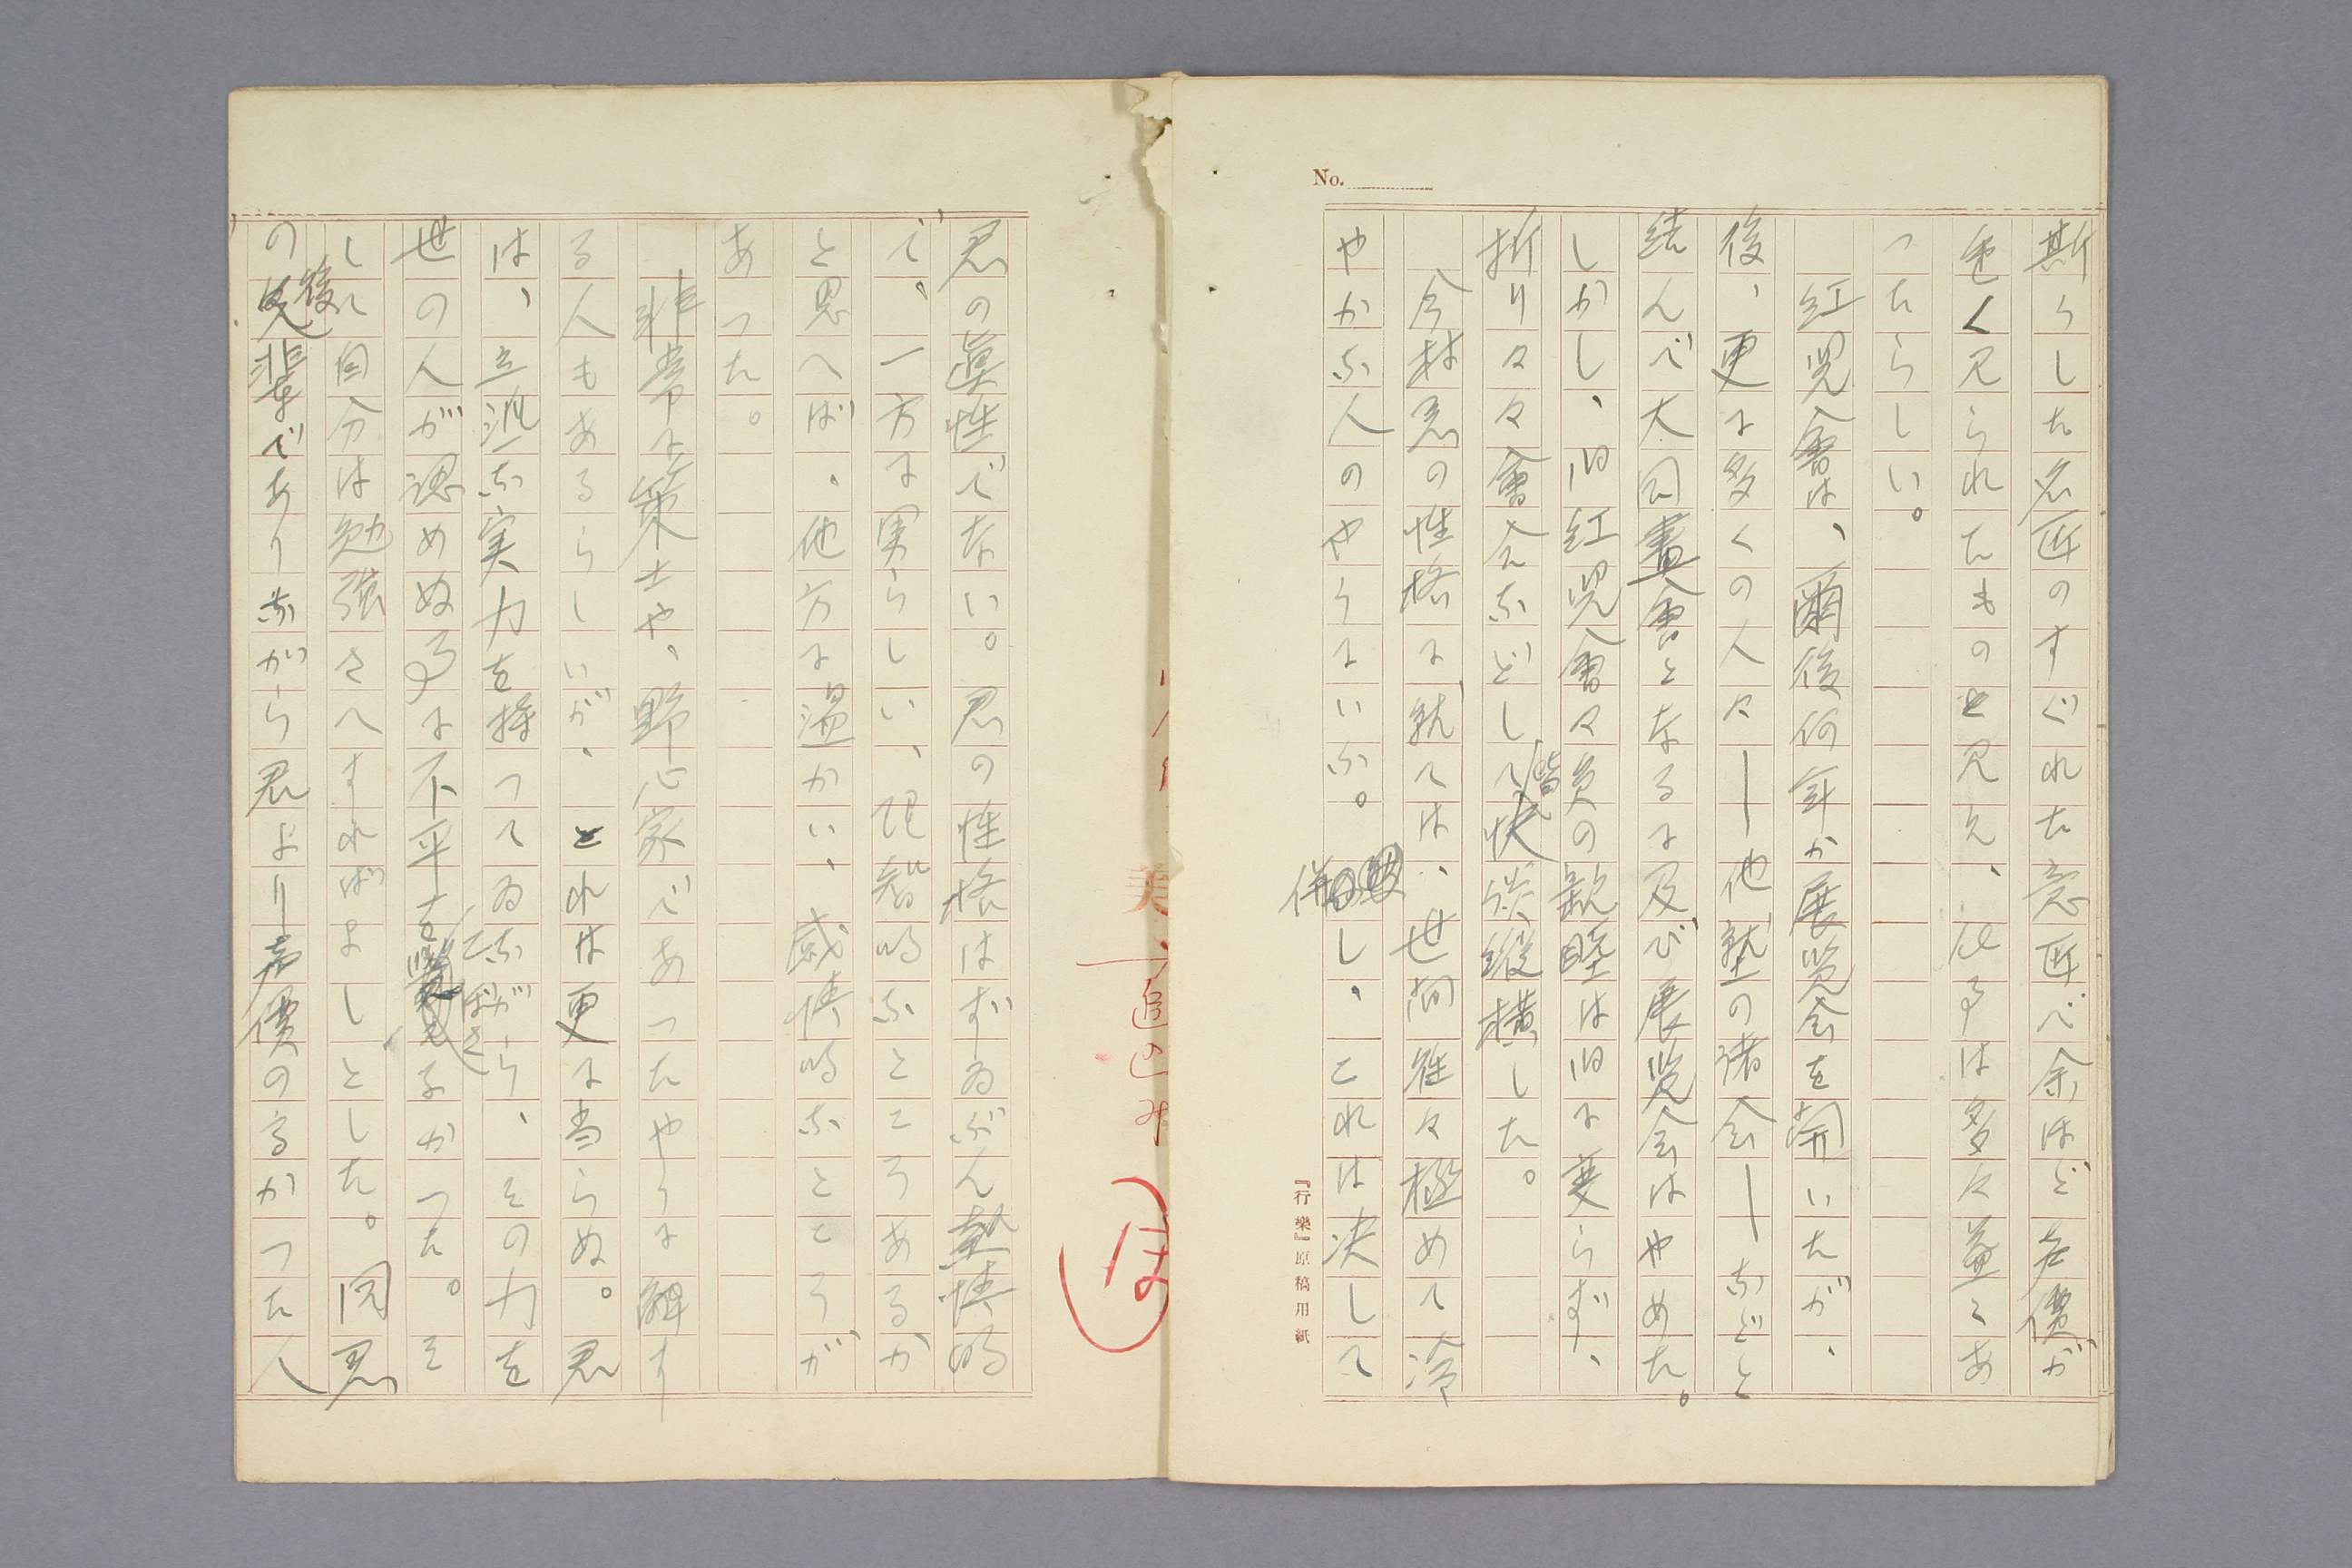 No.
斯うした名匠のすぐれた意匠で余ほど声價が
色く見られたものと見え、他事は多々益々あ
つたらしい。
紅児會は、爾後何年か展覧会を開いたが、
後、更に多くの人々―他塾の諸会―などと
結んで大同畫會となるに及び展覧会はやめた。
しかし、旧紅児會々員の親睦は旧に変らず、
折り々々會合などして皆快談縦横した。
今村君の性格に就ては、世間往々極めて冷
やかな人のやうにいふ。併し、これは決して
『行樂』原稿用紙
君の眞性でない。君の性格はずゐぶん熱情的
で、一方に実らしい、理智的なところあるか
と思へば、他方に温かい、感情的なところが
あつた。
非常に策士や、野心家であつたやうに解す
る人もあるらしいが、それは更に当らぬ。君
は、立派な実力を持つてゐながら、その力を
世の人が認めぬ事に不平さへこぼさなかつた。そ
して自分は勉強さへすればよしとした。同君
の後輩でありながら君より声價の高かつた人
追込み
ほ